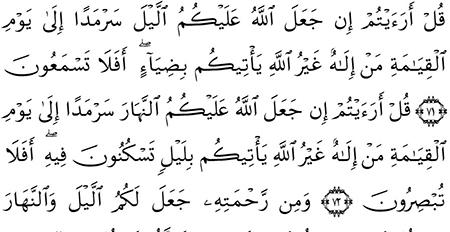 قُلْ أَرَءَيْتُمْ إِن جَعَلَ اللَّهُ عَلَيْكُمُ الَّيْلَ سَرْمَدًا إِلَىٰ يَوْمِ
الْقِيَـٰمَةِ مَنْ إِلَـٰهٌ غَيْرُ اللَّهِ يَأْتِيكُم بِضِيَآءٍ ۖ أَفَلَا تَسْمَعُونَ
﴿٧١﴾ قُلْ أَرَءَيْتُمْ إِن جَعَلَ اللَّهُ عَلَيْكُمُ النَّهَارَ سَرْمَدًا إِلَىٰ يَوْمِ
الْقِيَـٰمَةِ مَنْ إِلَـٰهٌ غَيْرُ اللَّهِ يَأْتِيكُم بِلَيْلٍ تَسْكُنُونَ فِيهِ ۖ أَفَلَا
تُبْصِرُونَ ﴿٧٢﴾ وَمِن رَّحْمَتِهِۦ جَعَلَ لَكُمُ الَّيْلَ وَالنَّهَارَ